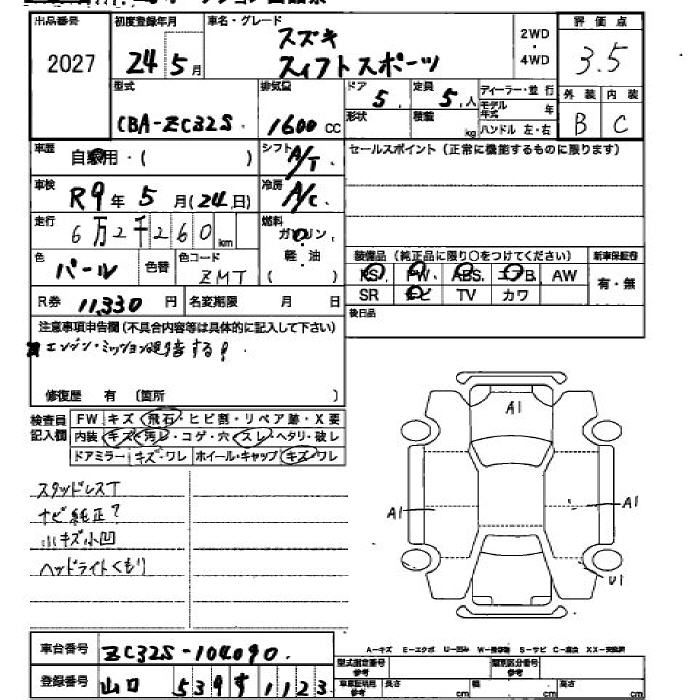 出品番号 初度登録年月 車名・グレード 2WD・4WD 評価点
2027 24 5月 スズキ スイフトスポーツ 3.5
型式 排気量 ドア 定員 ディーラー・並行 外装 内装
CBA-ZC32S 1600cc 5 5人 モデル年式 年 B C
形状 積載 kg ハンドル 左・右
車歴 自家用・( ) シフト A/T セールスポイント (正常に機能するものに限ります)
車検 R9年 5月(24日) 冷房 A/C
走行 6万2千260km 燃料 ガソリン 軽・油 ( )
色 パール 色替 色コード ZMT 装備品 (純正品に限り○をつけてください) 新車保証書
PS PW ABS エアB AW 有・無
R券 11,330円 名変期限 月 日 SR ナビ TV カワ
注意事項申告欄(不具合内容等は具体的に記入して下さい) 後日品
エンジン・ミッション
修復歴 有 (箇所 )
検査員記入欄 FW キズ・飛石・ヒビ割・リペア跡・X要
内装 キズ・汚レ・コゲ・穴・スレ・ヘタリ・破レ
ドアミラー キズ・ワレ ホイール・キャップ キズ・ワレ
A1
スタッドレスT
ナビ純正?
A1 A1
小キズ小凹
ヘッドライトくもり
U1
車台番号 ZC32S-104090
A-キズ E-エクボ U-凹み
登録番号 山口 539 す 1123
型式指定番号 参考 類別区分番号 参考
車庫証明用 参考 長さ cm 幅 cm 高さ cm